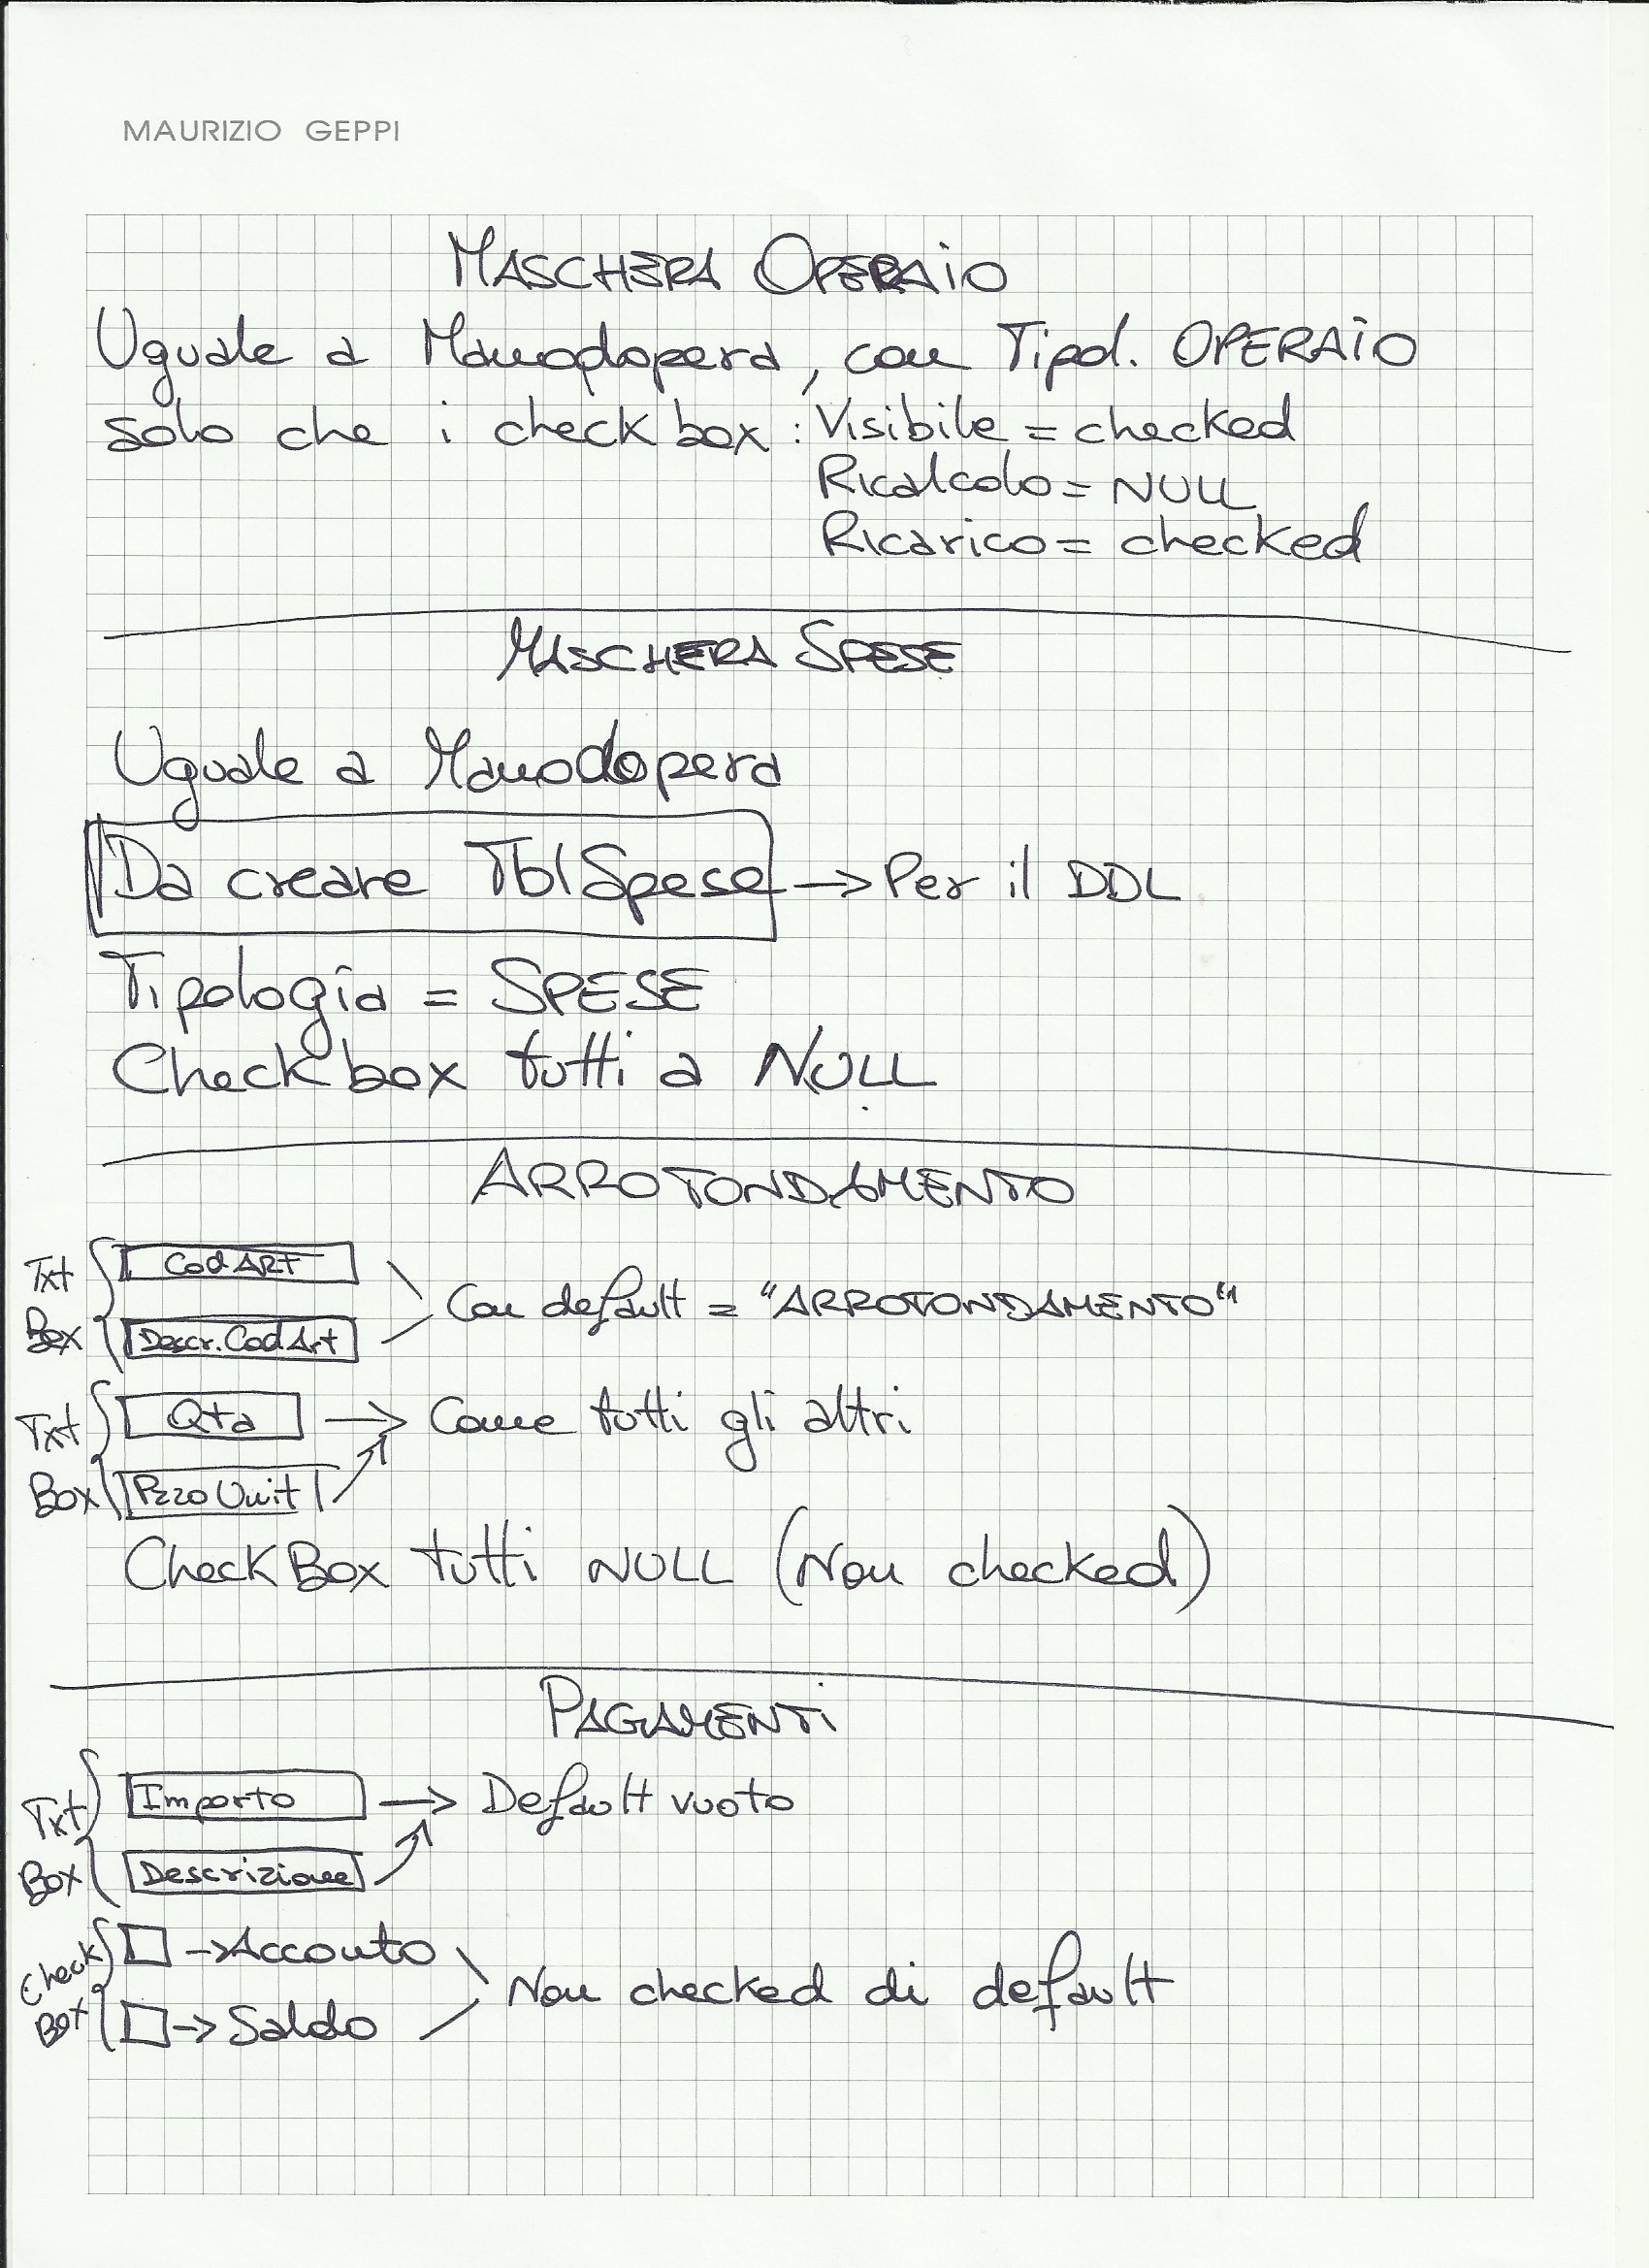 MAURIZIO GEPPI
MASCHERA OPERAIO
Uguale a Manodopera, con Tipol. OPERAIO
solo che i check box : Visibile = checked
Ricalcolo = NULL
Ricarico = checked
MASCHERA SPESE
Uguale a Manodopera
Da creare TblSpese → Per il DDL
Tipologia = SPESE
Checkbox tutti a NULL
ARROTONDAMENTO
Txt Box
Cod ART
Descr. Cod Art
Con default = "ARROTONDAMENTO"
Txt Box
Qta → Come tutti gli altri
Pzzo Unit
CheckBox tutti NULL (Non checked)
PAGAMENTI
Txt Box
Importo → Default vuoto
Descrizione
Check Box
→ Acconto
→ Saldo
Non checked di default